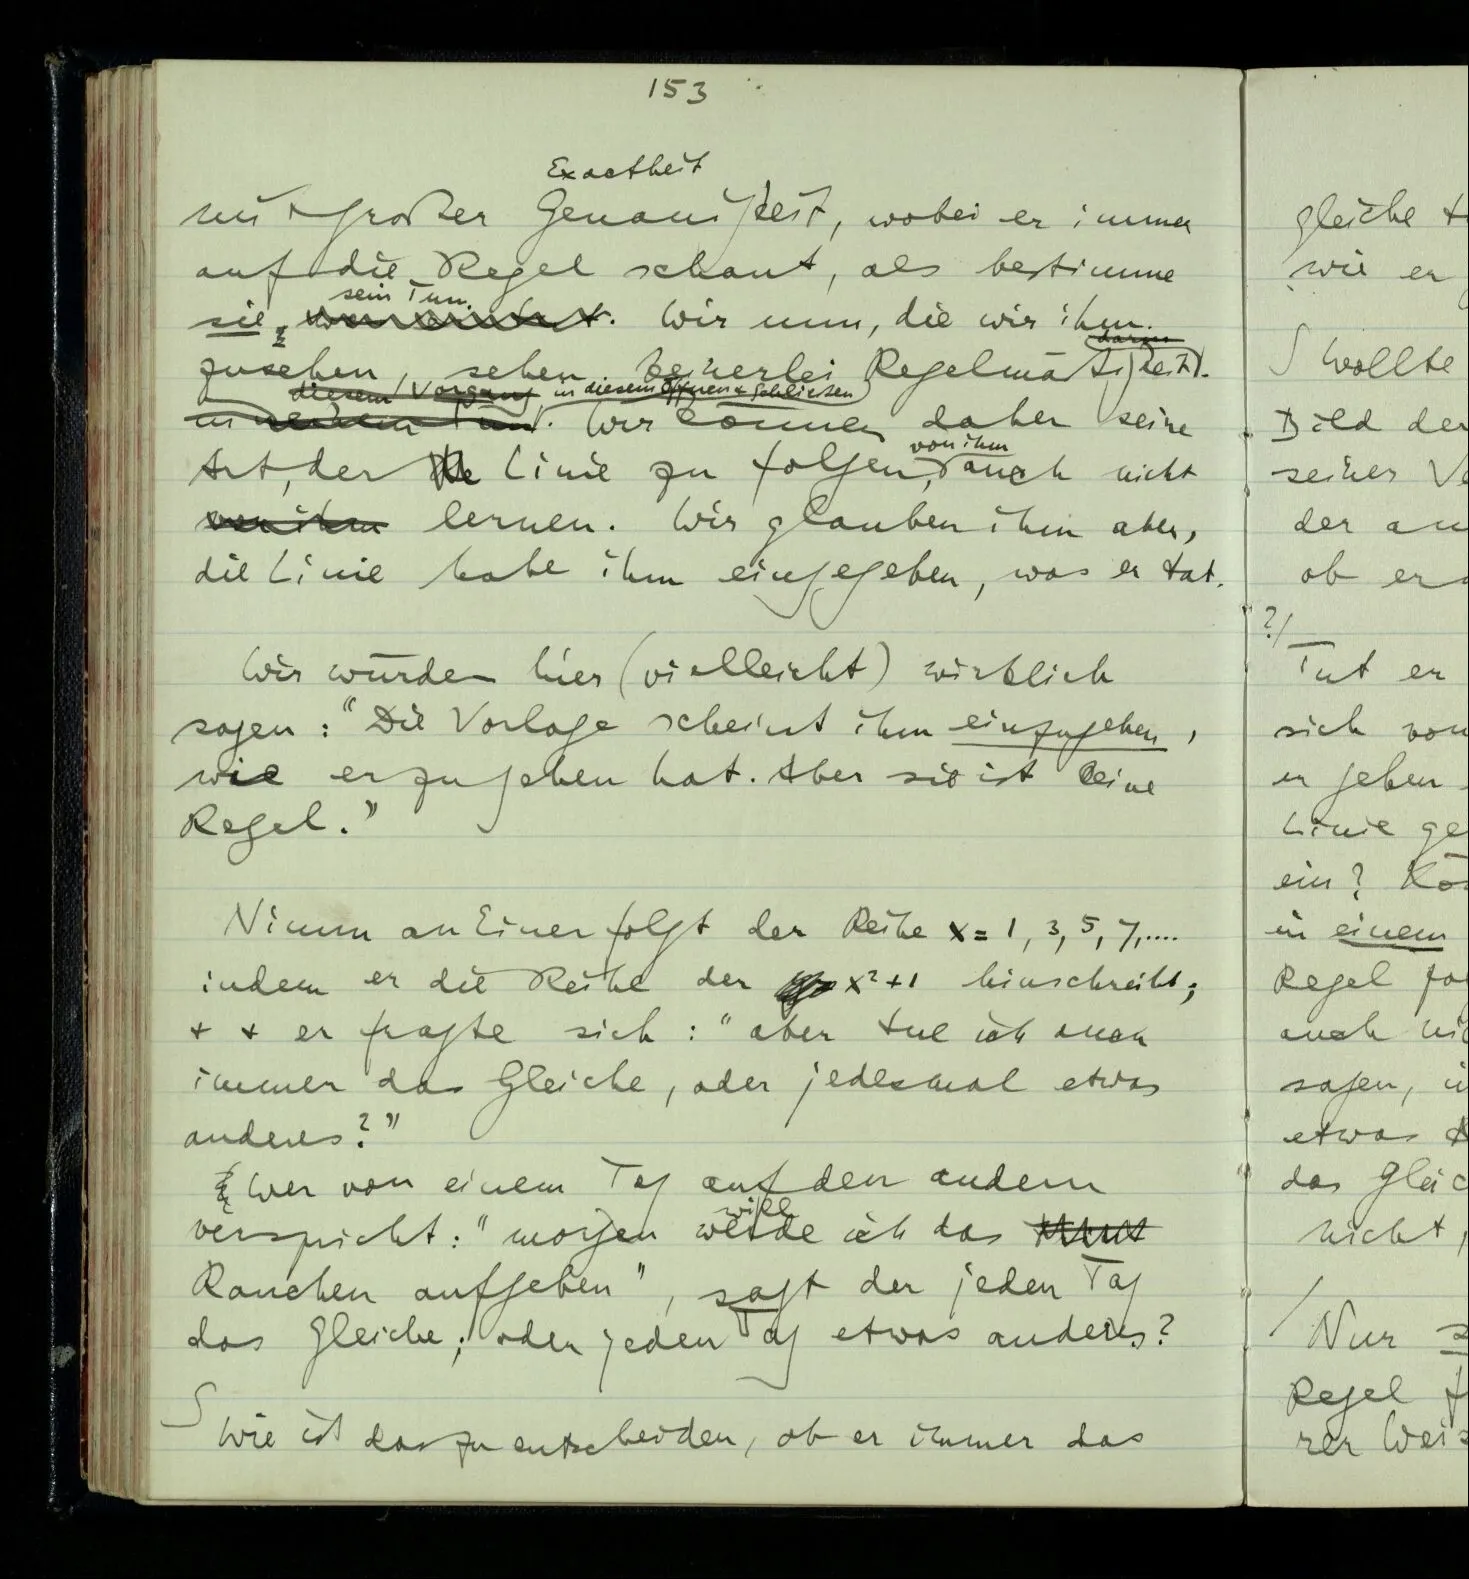 153
Exactheit
mit großer Genauigkeit, wobei er immer
auf die Regel schaut, als bestimme
sein Tun.
sie. Wir nun, die wir ihm
darin
zusehen, sehen keinerlei Regelmäßigkeit
diesem Vorgang in diesem Öffnen & Schließen
in seinem Tun. Wir können daher seine
von ihm
Art, der Linie zu folgen, auch nicht
von ihm lernen. Wir glauben ihm aber,
die Linie habe ihm eingegeben, was er tat.
Wir würden hier (vielleicht) wirklich
sagen: "Die Vorlage scheint ihm einzugeben,
wie er zu gehen hat. Aber sie ist keine
Regel."
Nimm an Einer folgt der Reihe x = 1, 3, 5, 7,....
indem er die Reihe der x²+1 hinschreibt;
+ + er fragte sich: "aber tue ich auch
immer das Gleiche, oder jedesmal etwas
anderes?"
Wer von einem Tag auf den andern
will
verspricht: "morgen werde ich das
Rauchen aufgeben", sagt der jeden Tag
das Gleiche; oder jeden Tag etwas anderes?
∫
Wie ist das zu entscheiden, ob er immer das
gleiche
wie er
∫ Wollte
Bild der
seiner
der
ob er
?/
Tut er
sich von
er gehen
Linie
ein?
in einem
Regel
auch
sagen,
etwas
das
nicht,
/ Nur
Regel
rer